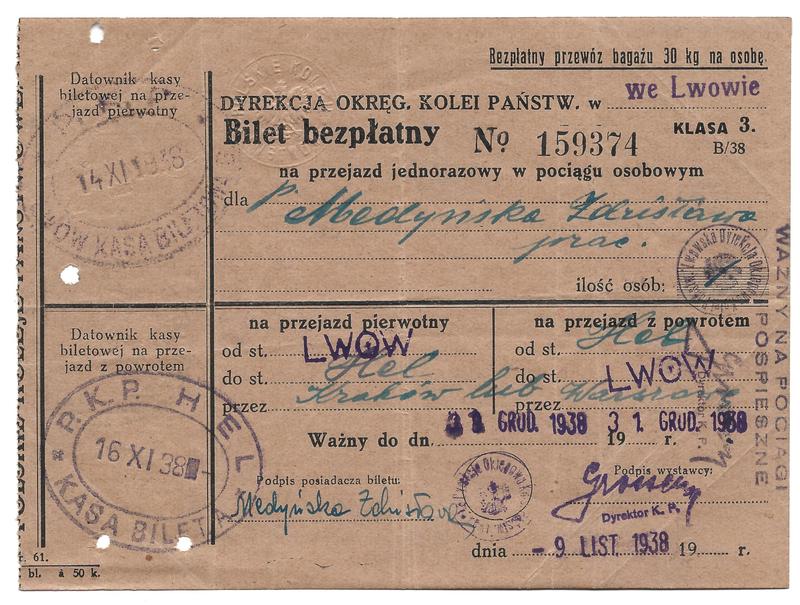 Bezpłatny przewóz bagażu 30 kg na osobę.
Datownik kasy
biletowej na prze-
jazd pierwotny
14 XI 1938
LWÓW KASA BILETOWA
DYREKCJA OKRĘG. KOLEI PAŃSTW. w we Lwowie
Bilet bezpłatny No 159374 KLASA 3.
B/38
na przejazd jednorazowy w pociągu osobowym
dla P. Medyńska Zdzisława
prac.
ilość osób: 1
WAŻNY NA POCIĄGI
POSPIESZNE
Datownik kasy
biletowej na prze-
jazd z powrotem
P.K.P. HEL
16 XI 38
KASA BILETOWA
na przejazd pierwotny
od st. LWÓW
do st. Hel
przez Kraków lub Warszawę
na przejazd z powrotem
od st. Hel
do st. LWÓW
przez
Ważny do dn. 31 GRUD. 1938 31 GRUD. 1938 19 r.
Podpis posiadacza biletu:
Medyńska Zdzisława
Podpis wystawcy:
Dyrektor K. P.
dnia - 9 LIST. 1938 19 r.
. 61.
bl. à 50 k.